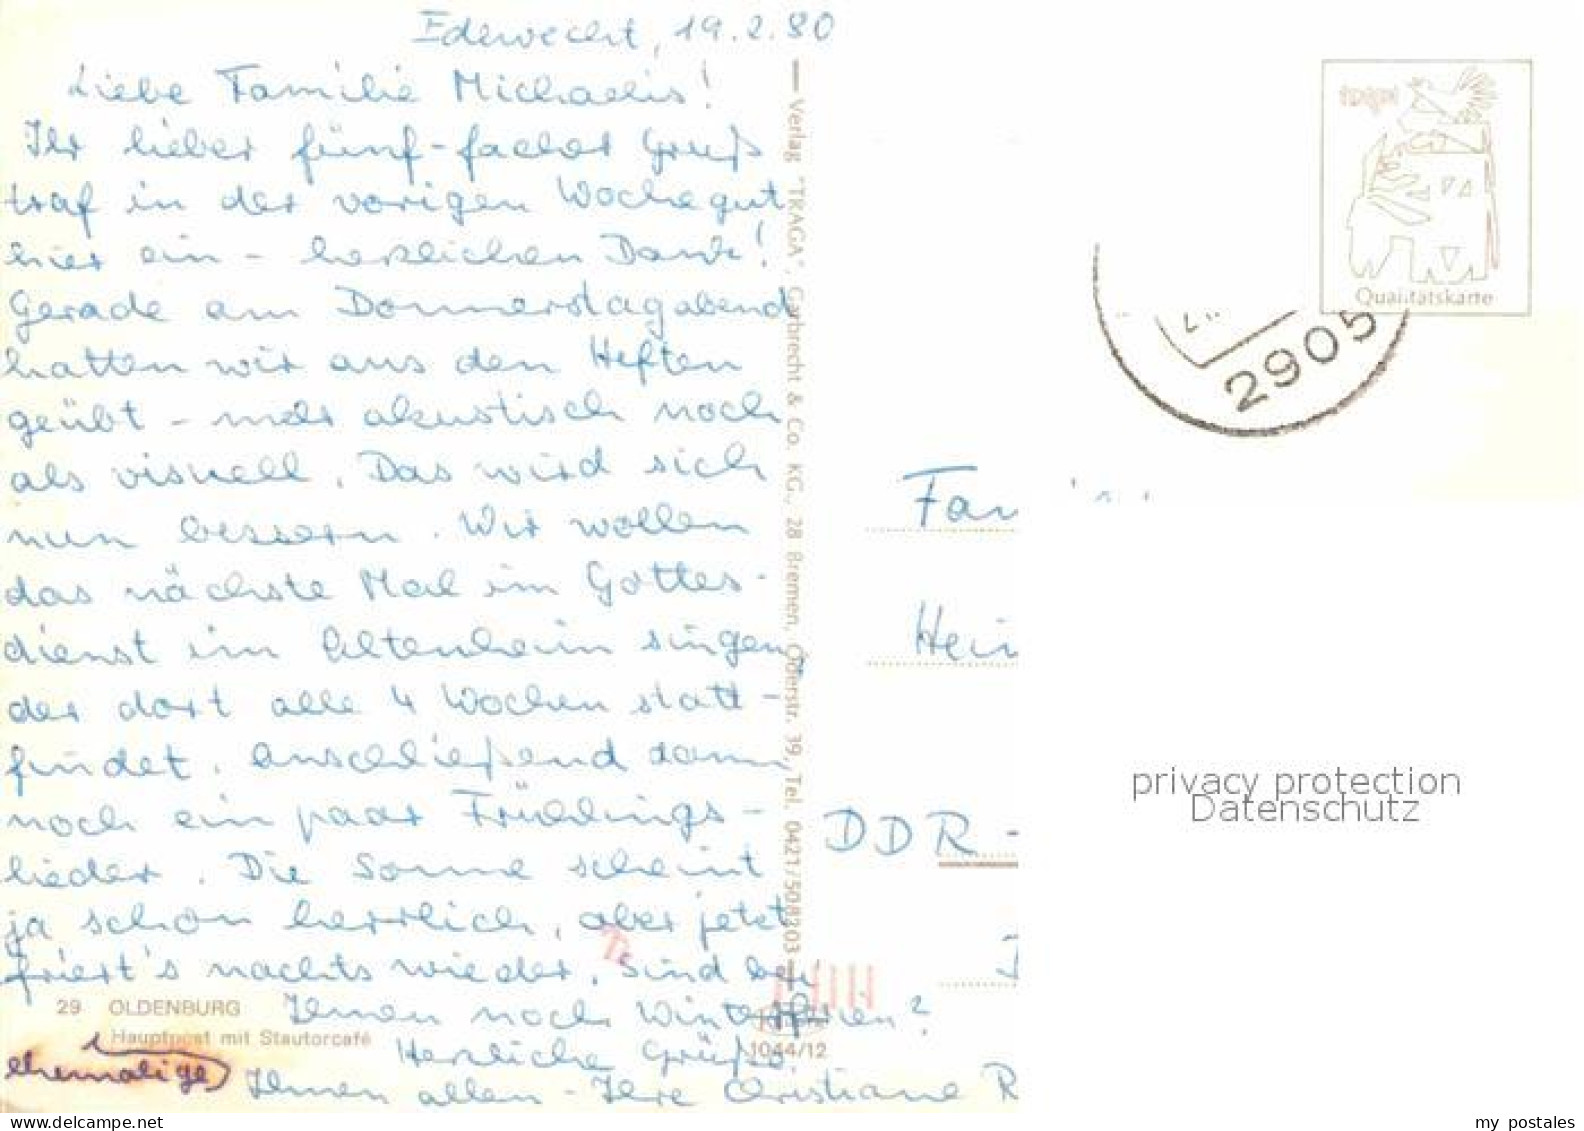 Edewecht, 19.2.80
Liebe Familie Michaelis!
Ihr lieber fünf-facher Gruß
traf in der vorigen Woche gut
hier ein - herzlichen Dank!
Gerade am Donnerstagabend
hatten wir aus den Heften
geübt - mehr akustisch noch
als visuell. Das wird sich
nun bessern. Wir wollen
das nächste Mal im Gottes-
dienst im Altenheim singen,
der dort alle 4 Wochen statt-
findet. Anschließend dann
noch ein paar Frühlings-
lieder. Die Sonne scheint
ja schon herrlich, aber jetzt
friert's nachts wieder. Sind bei
Ihnen noch Winterferien?
Herzliche Grüße
Ihnen allen - Ihre Christiane R
29 OLDENBURG
Hauptpost mit Stautorcafé
ehemalige
1044/12
Verlag "TRAGA", Garbrecht & Co. KG., 28 Bremen, Oderstr. 39, Tel. 0421/508203
Qualitätskarte
2905
Fam
Hein
DDR -
privacy protection
Datenschutz
my postales